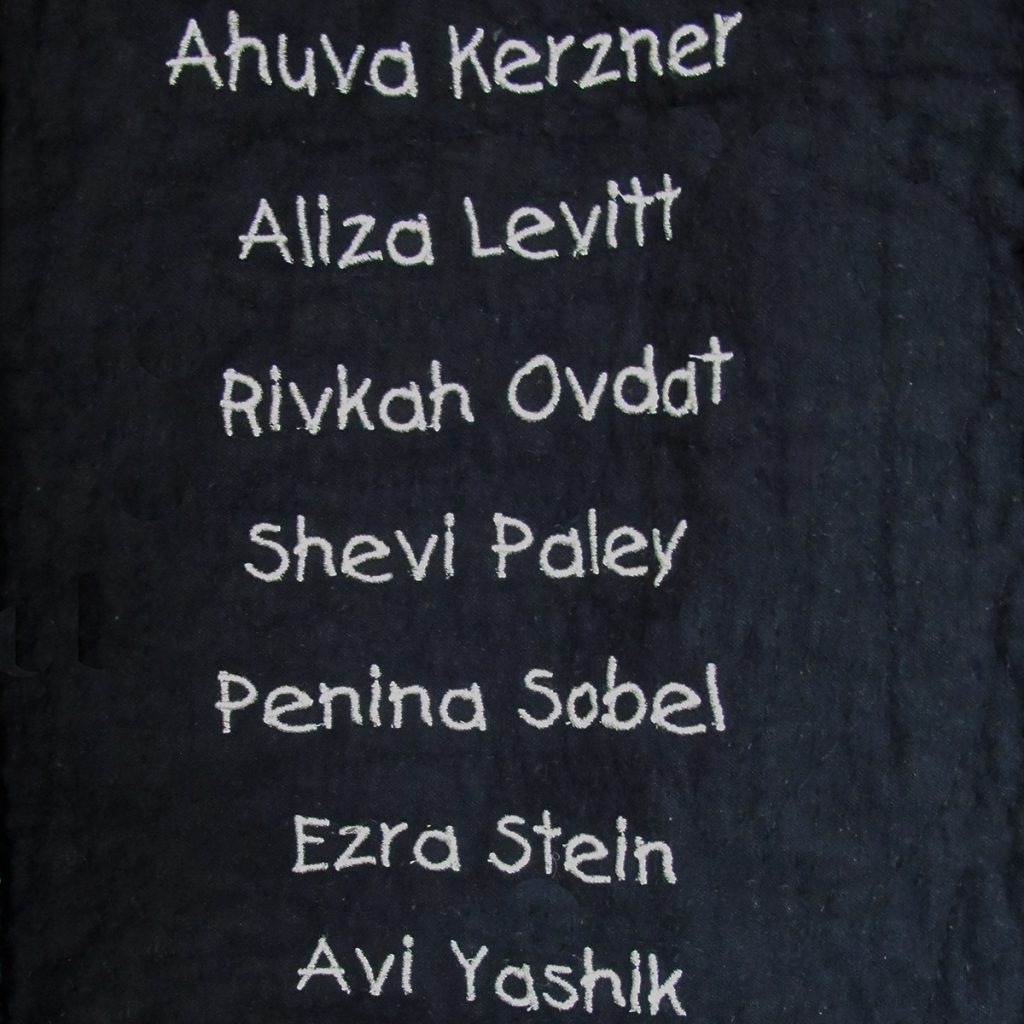 Ahuva Kerzner
Aliza Levitt
Rivkah Ovdat
Shevi Paley
Penina Sobel
Ezra Stein
Avi Yashik